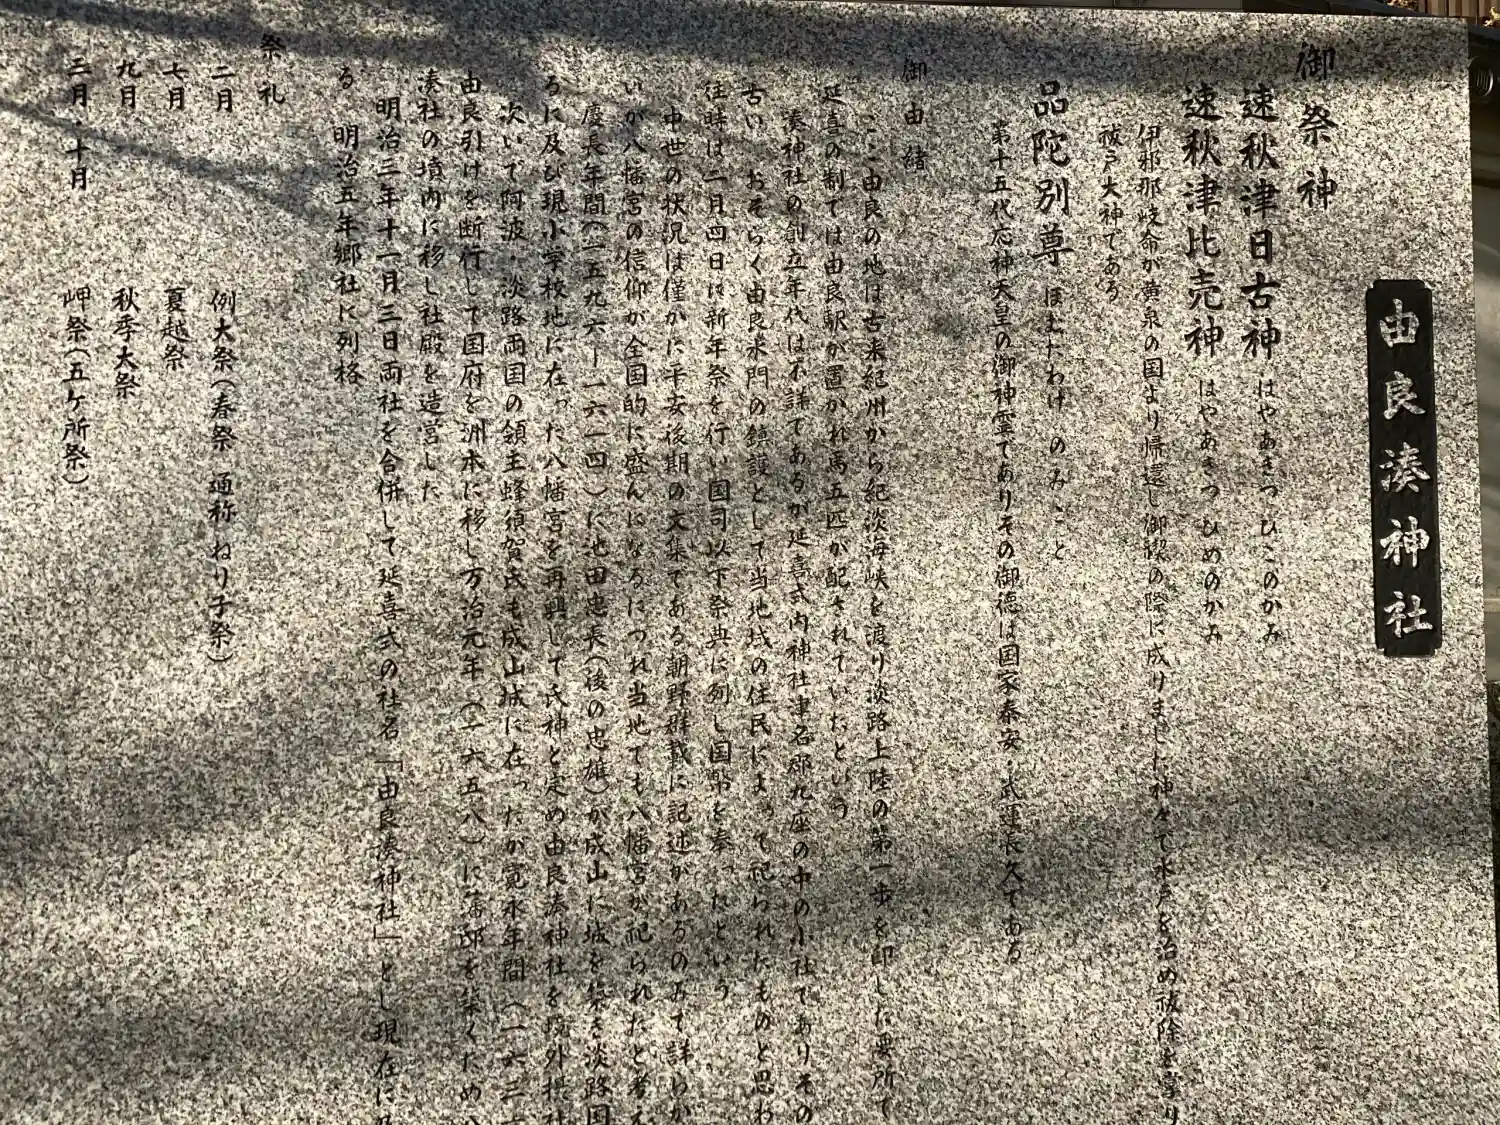 由良湊神社
御祭神
速秋津日古神 はやあきつひこのかみ
速秋津比売神 はやあきつひめのかみ
伊邪那岐命が黄泉の国より帰還し御禊の際に成りました神々で水戸を治め祓除を掌り
祓戸大神である
品陀別尊 ほむたわけのみこと
第十五代応神天皇の御神霊でありその御徳は国家泰安・武運長久である
御由緒
ここ由良の地は古来紀州から紀淡海峡を渡り淡路上陸の第一歩を印した要所で
延喜の制では由良駅が置かれ馬五匹が配されていたという
湊神社の創立年代は不詳であるが延喜式内神社津名郡九座の中の小社でありその
古い おそらく由良水門の鎮護として当地域の住民によって祀られたものと思わ
往時は二月四日は新年祭を行い国司以下祭典に列し国幣を奉ったという
中世の状況は僅かに平安後期の文集である朝野群載に記述があるのみで詳らか
いが八幡宮の信仰が全国的に盛んになるにつれ当地でも八幡宮が祀られたと考え
慶長年間(一五九六ー一六一四)に池田忠長(後の忠雄)が成山に城を築き淡路国
るに及び現小学校地に在った八幡宮を再興して氏神と定め由良湊神社を境外摂社
次いで阿波・淡路両国の領主蜂須賀氏も成山城に在ったが寛永年間(一六三一
由良引けを断行して国府を洲本に移し万治元年(一六五八)に藩邸を築くため八
湊社の境内に移し社殿を造営した
明治三年十一月三日両社を合併して延喜式の社名「由良湊神社」とし現在に及
る 明治五年郷社に列格
祭礼
二月 例大祭(春祭 通称ねり子祭)
七月 夏越祭
九月 秋季大祭
三月・十月 岬祭(五ケ所祭)